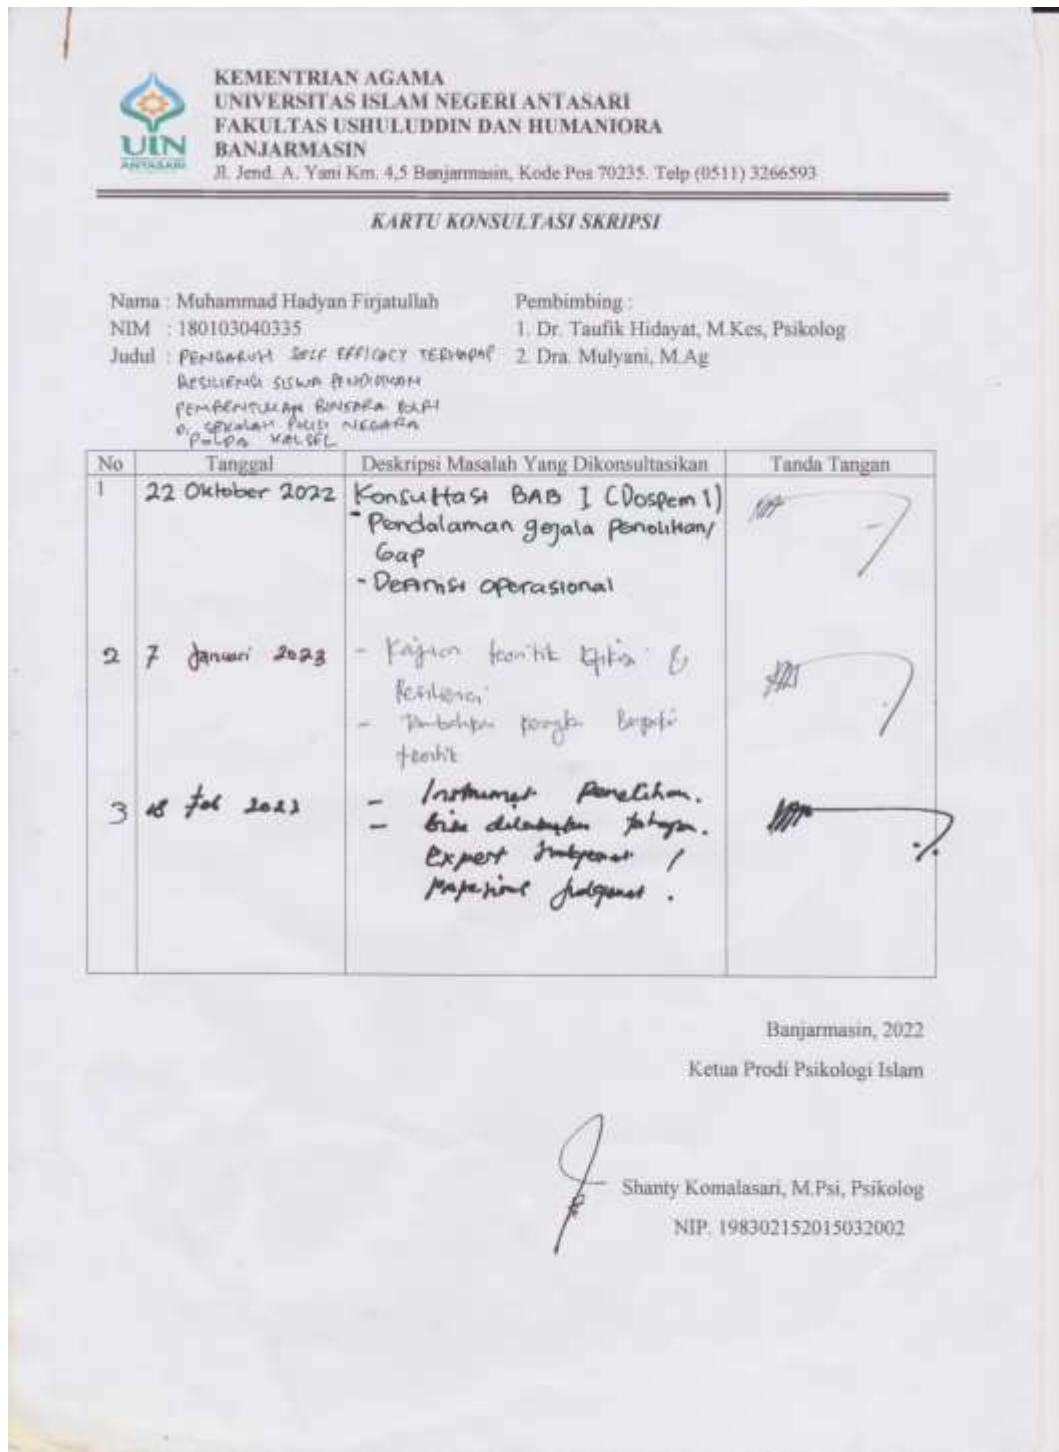 KEMENTRIAN AGAMA
UNIVERSITAS ISLAM NEGERI ANTASARI
FAKULTAS USHULUDDIN DAN HUMANIORA
BANJARMASIN
Jl. Jend. A. Yani Km. 4,5 Banjarmasin, Kode Pos 70235. Telp (0511) 3266593
UIN
ANTASARI
KARTU KONSULTASI SKRIPSI
Nama : Muhammad Hadyan Firjatullah
NIM : 180103040335
Judul : PENGARUH SELF EFFICACY TERHADAP
RESILIENSI SISWA PENDIDIKAN
PEMBENTUKAN BINTARA POLRI
DI SEKOLAH POLISI NEGARA
POLDA KALSEL
Pembimbing :
1. Dr. Taufik Hidayat, M.Kes, Psikolog
2. Dra. Mulyani, M.Ag
No Tanggal Deskripsi Masalah Yang Dikonsultasikan Tanda Tangan
1 22 Oktober 2022 Konsultasi BAB I (Dospem 1)
- Pendalaman gejala Penelitian/
Gap
- Definisi operasional
2 7 Januari 2023 - Kajian teoritik &
Resiliensi
-
teoritik
3 Feb 2023 - Instrumen Penelitian.
- bisa dilanjutkan
Expert Judgement /
Judgement.
Banjarmasin, 2022
Ketua Prodi Psikologi Islam
Shanty Komalasari, M.Psi, Psikolog
NIP. 198302152015032002